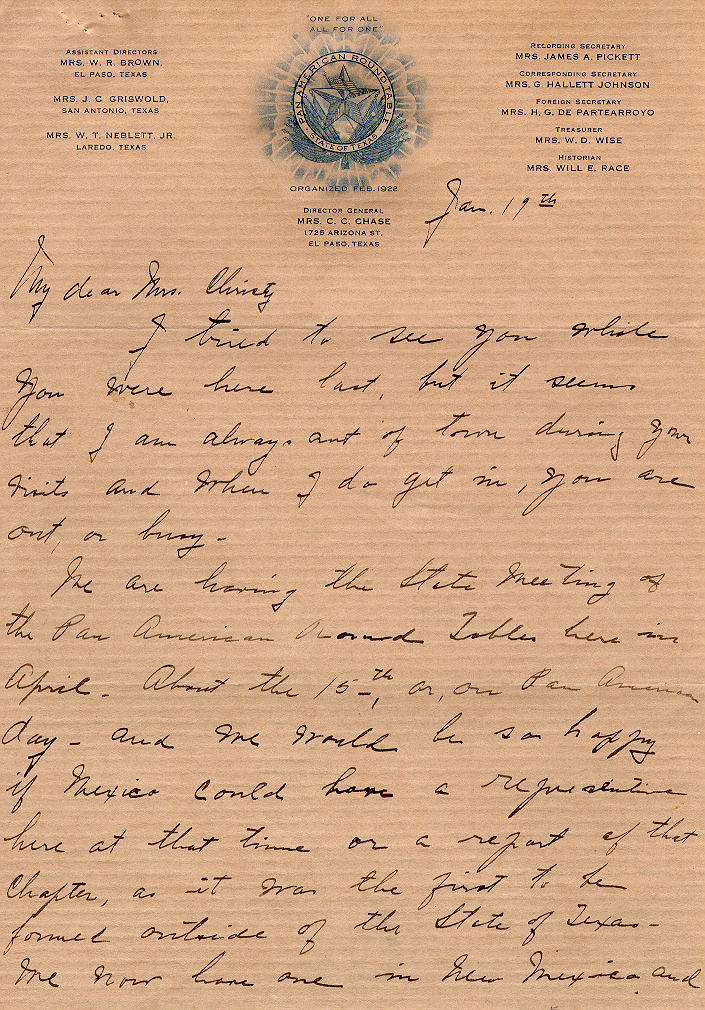 "ONE FOR ALL
ALL FOR ONE"
PAN AMERICAN ROUND TABLE
STATE OF TEXAS
ORGANIZED FEB. 1922
DIRECTOR GENERAL
MRS. C. C. CHASE
1725 ARIZONA ST.
EL PASO, TEXAS
ASSISTANT DIRECTORS
MRS. W. R. BROWN,
EL PASO, TEXAS
MRS. J. C. GRISWOLD,
SAN ANTONIO, TEXAS
MRS. W. T. NEBLETT, JR.
LAREDO, TEXAS
RECORDING SECRETARY
MRS. JAMES A. PICKETT
CORRESPONDING SECRETARY
MRS. G. HALLETT JOHNSON
FOREIGN SECRETARY
MRS. H. G. DE PARTEARROYO
TREASURER
MRS. W. D. WISE
HISTORIAN
MRS. WILL E. RACE
Jan. 19th
My dear Mrs. Christy
I tried to see you while
you were here last, but it seems
that I am always out of town during your
visits and when I do get in, you are
out, or busy-
We are having the State Meeting of
the Pan American Round Tables here in
April- About the 15th, or, on Pan American
day- and we would be so happy
if Mexico could have a representive
here at that time or a report of that
Chapter, as it was the first to be
formed outside of the State of Texas-
We now have one in New Mexico and